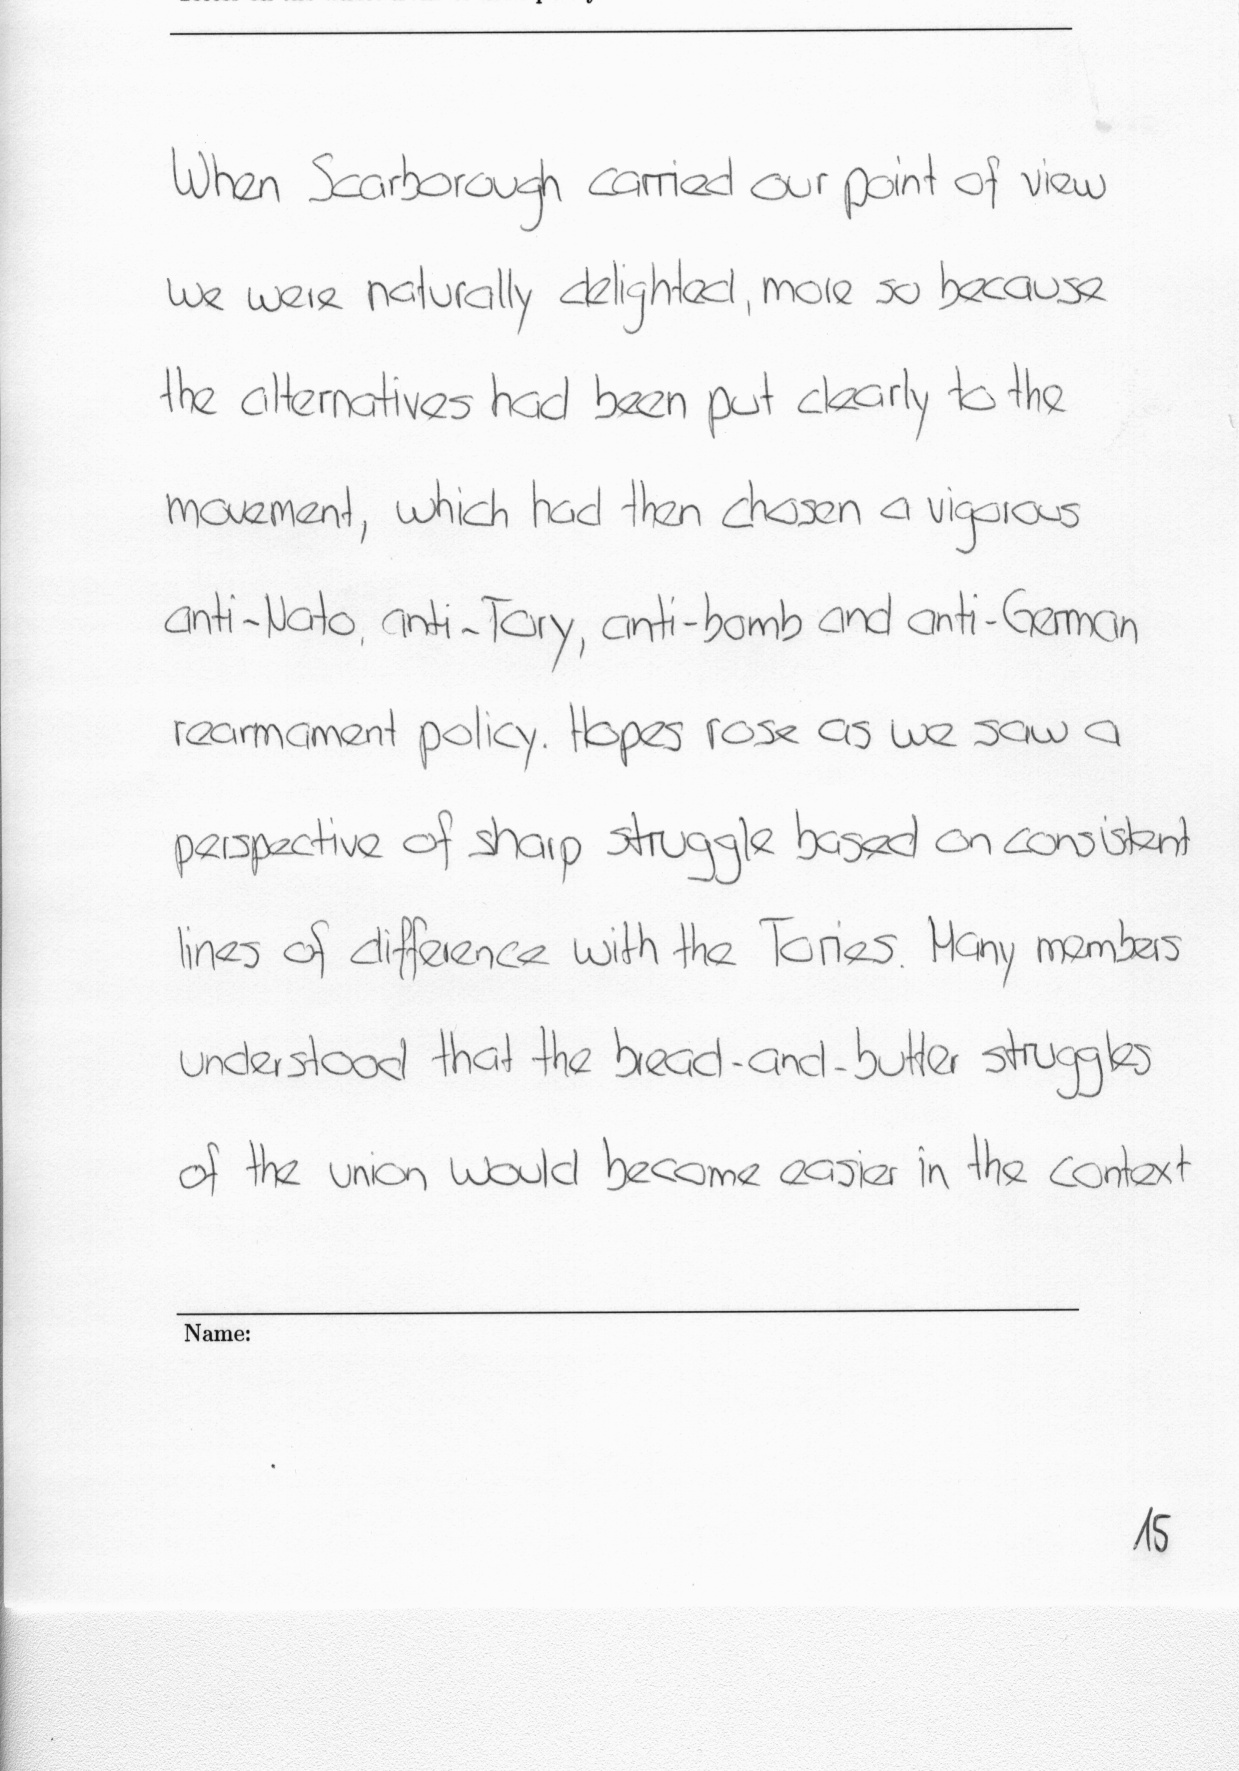 When Scarborough carried our point of view
we were naturally delighted, more so because
the alternatives had been put clearly to the
movement, which had then chosen a vigorous
anti-Nato, anti-Tory, anti-bomb and anti-German
rearmament policy. Hopes rose as we saw a
perspective of sharp struggle based on consistent
lines of difference with the Tories. Many members
understood that the bread-and-butter struggles
of the union would become easier in the context
Name:
15